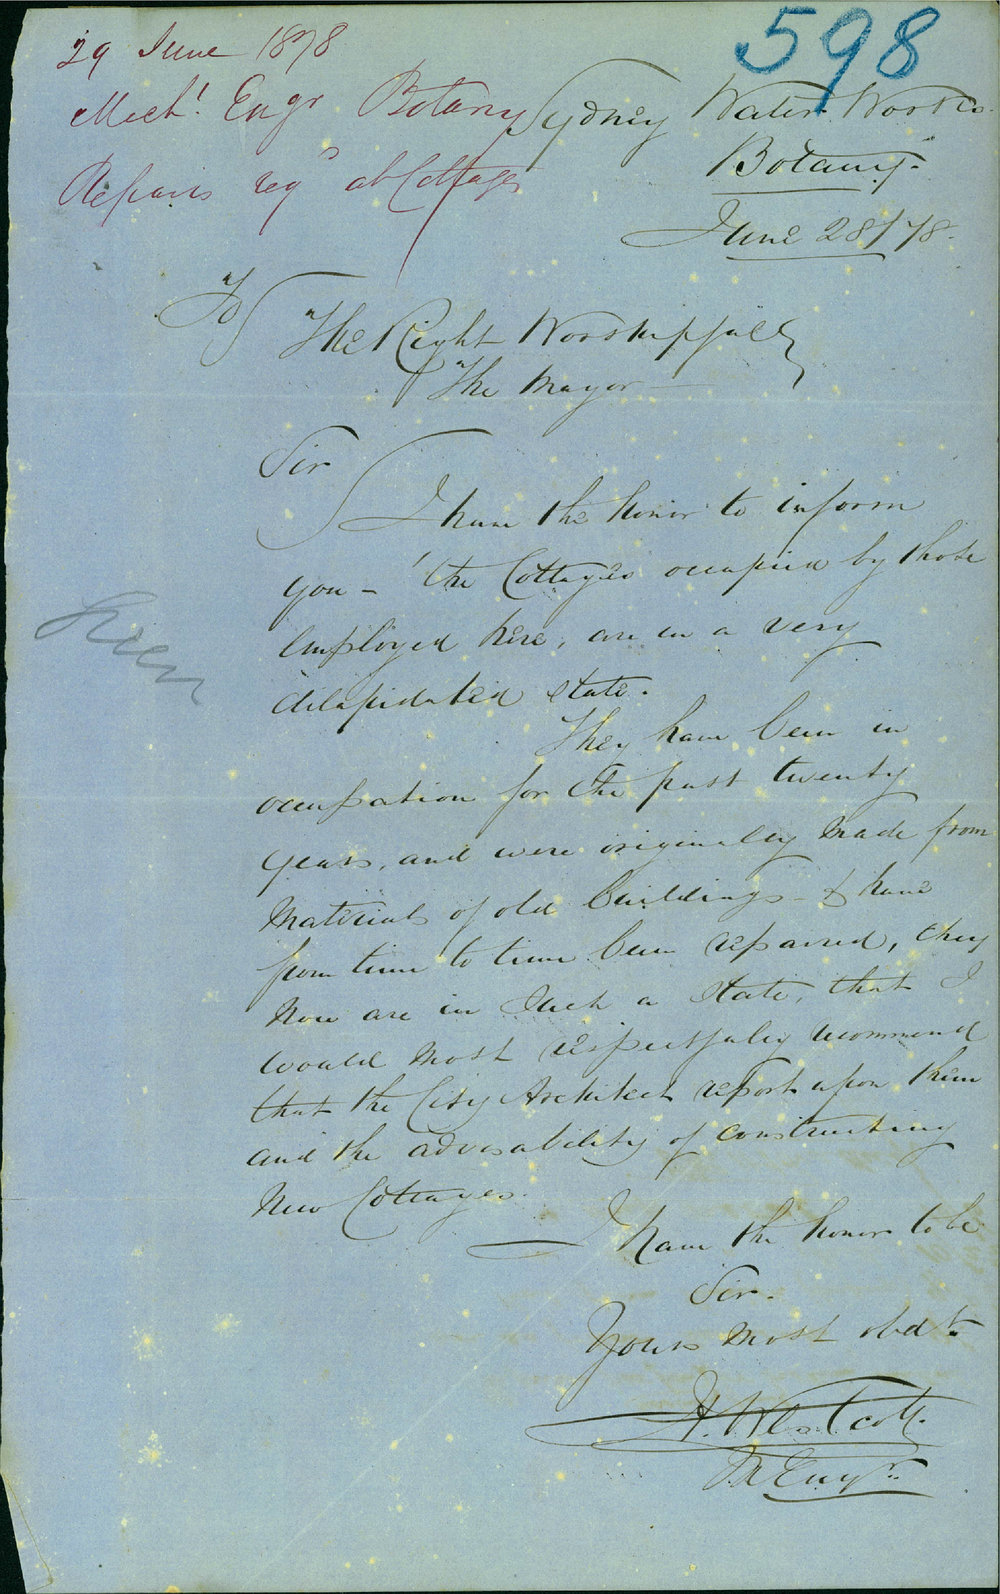 598
29 June 1878
Mechl. Engr Botany
Repairs reqd at Cottages
Sydney Water Works
Botany.
June 28/78.
To
The Right Worshipfull
The Mayor
Sir
I have the honor to inform
you - the Cottages occupied by those
employed here, are in a very
dilapidated state.
They have been in
occupation for the past twenty
years, and were originally made from
Materials of old buildings - & have
from time to time been repaired, they
Now are in such a state, that I
would most respectfully recommend
that the City Architect report upon them
and the advisability of constructing
New Cottages.
I have the honor to be
Sir.
Yours most obdt.
H. Westcott
M Engr.